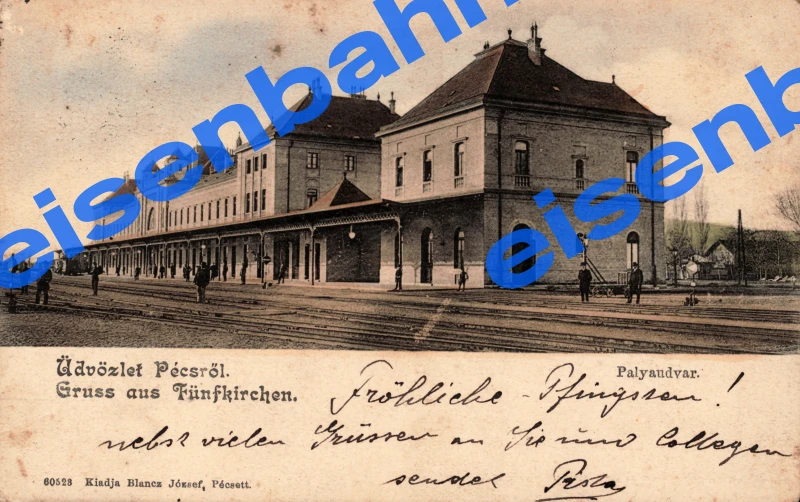 eisenbahn
eisenbahn
Üdvözlet Pécsről.
Gruss aus Fünfkirchen.
Palyaudvar.
Fröhliche - Pfingsten!
nebst vielen Grüssen an Sie und Collegen
sendet Pista
60523 Kiadja Blancz József, Pécsett.